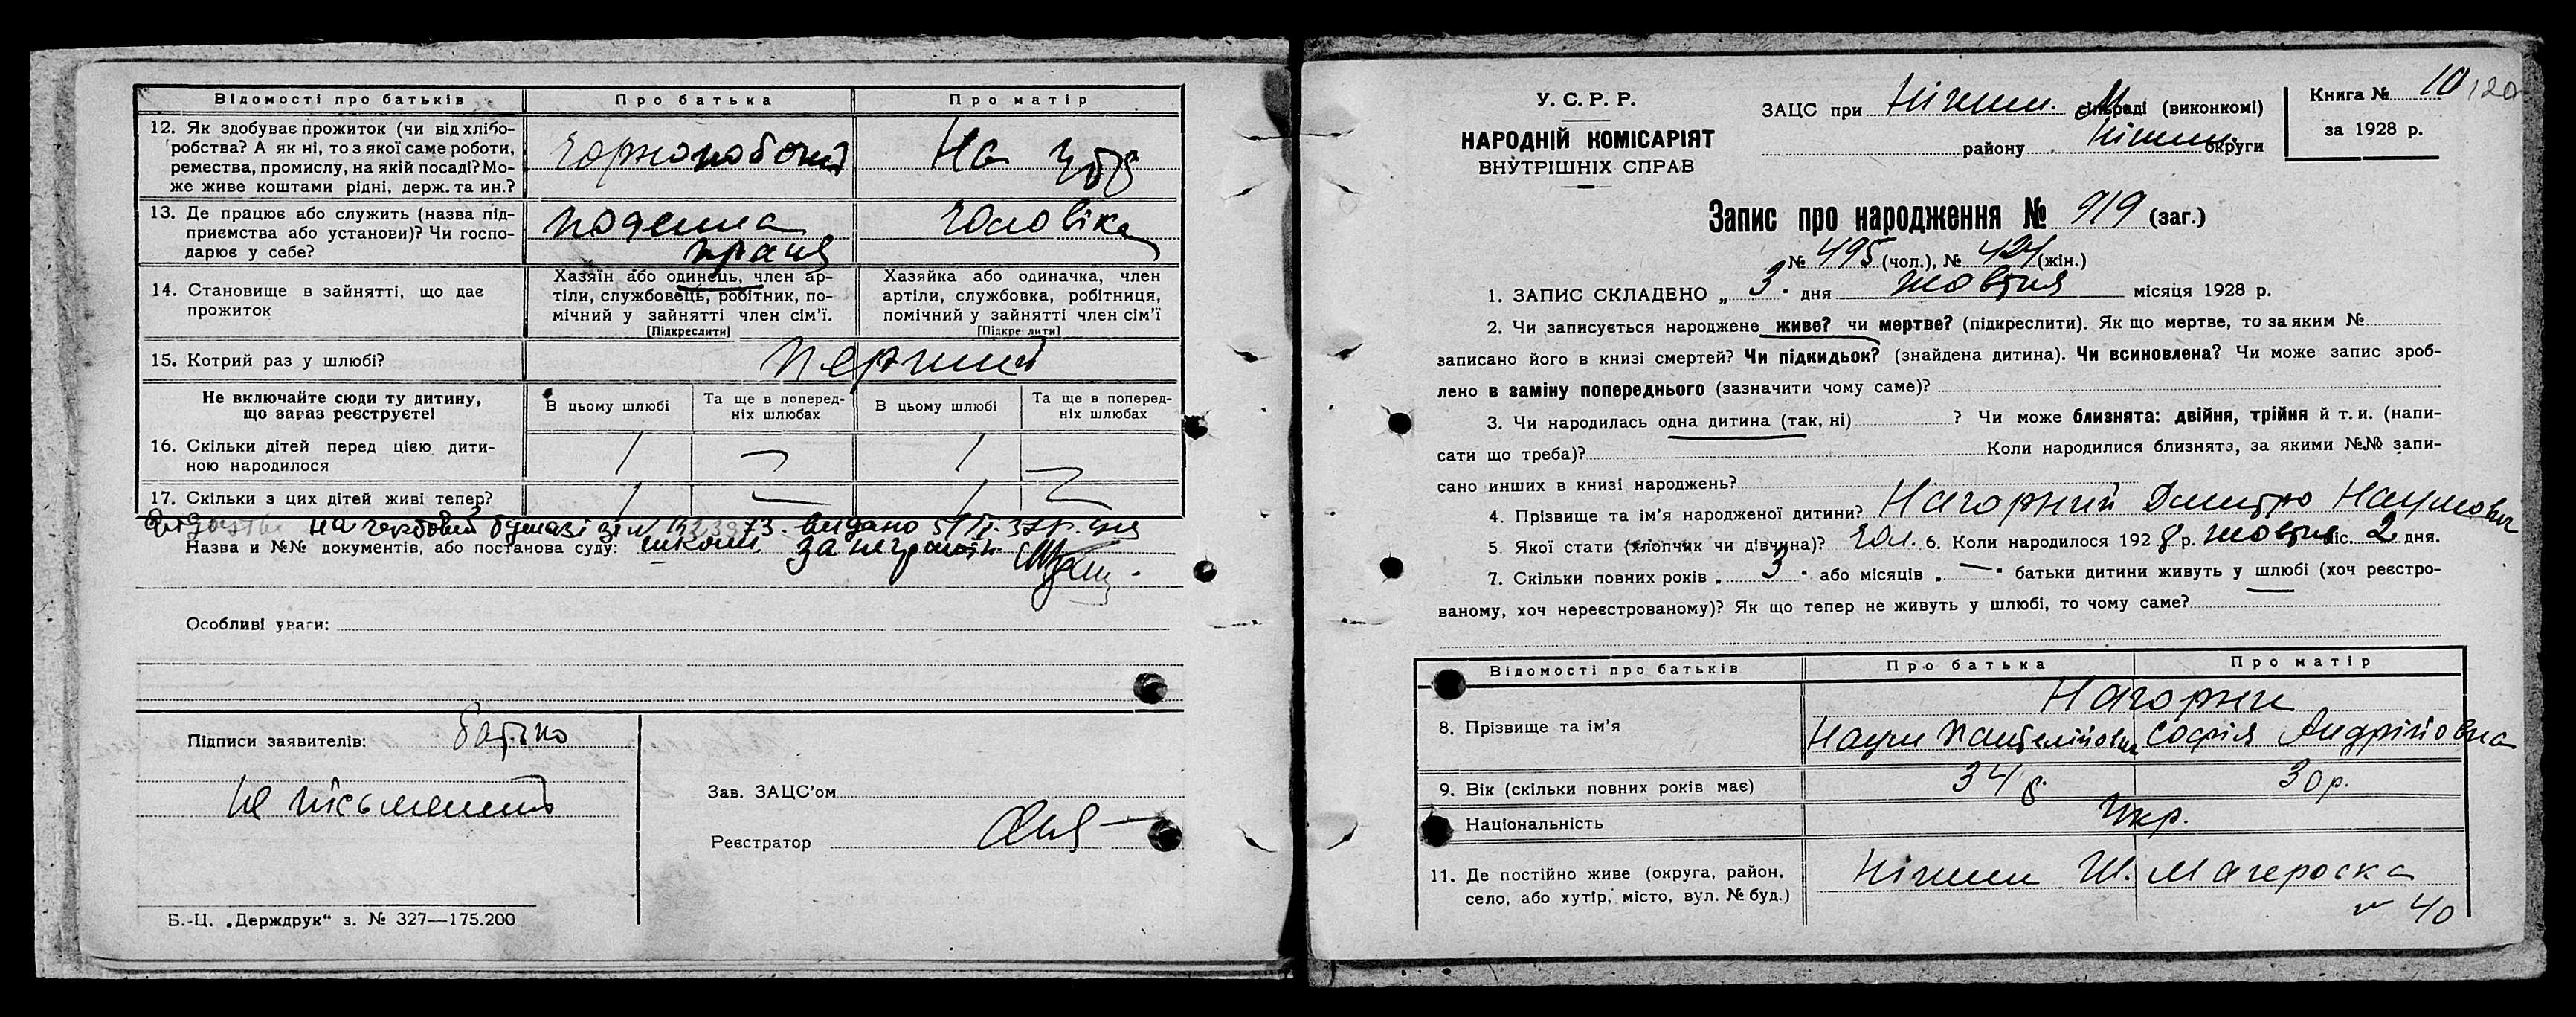 Відомості про батьків Про батька Про матір
12. Як здобуває прожиток (чи від хлібо-
робства? А як ні, то з якої саме роботи,
ремества, промислу, на якій посаді? Мо-
же живе коштами рідні, держ. та ин.?
Чорноробочий
На утр
13. Де працює або служить (назва під-
приємства або установи)? Чи госпо-
дарює у себе?
поденна
праця
Чоловіка
14. Становище в зайнятті, що дає
прожиток
Хазяїн або одинець, член ар-
тіли, службовець, робітник, по-
мічний у зайнятті член сім'ї.
[Підкреслити]
Хазяйка або одиначка, член
артіли, службовка, робітниця,
помічний у зайнятті член сім'ї
[Підкреслити]
15. Котрий раз у шлюбі? перший
Не включайте сюди ту дитину,
що зараз реєструєте!
В цьому шлюбі
Та ще в поперед-
ніх шлюбах
В цьому шлюбі
Та ще в поперед-
ніх шлюбах
16. Скільки дітей перед цією дити-
ною народилося
1 — 1 —
17. Скільки з цих дітей живі тепер?
1 — 1 —
на гербовій бумазі видано
Назва и №№ документів, або постанова суду: школи за
Особливі уваги:
Підписи заявителів: батько
не письменний
Зав. ЗАЦС'ом
Реєстратор
Б.-Ц. „Держдрук“ з. № 327—175.200
У. С. Р. Р.
НАРОДНІЙ КОМІСАРІЯТ
ВНУТРІШНІХ СПРАВ
ЗАЦС при Ніжин. М сільраді (виконкомі)
району Ніжин. округи
Книга № 10 120
за 1928 р.
Запис про народження № 919 (заг.)
№ 495 (чол.), № 424 (жін.)
1. ЗАПИС СКЛАДЕНО „ 3 " дня жовтня місяця 1928 р.
2. Чи записується народжене живе? чи мертве? (підкреслити). Як що мертве, то за яким №
записано його в книзі смертей? Чи підкидьок? (знайдена дитина). Чи всиновлена? Чи може запис зроб-
лено в заміну попереднього (зазначити чому саме)?
3. Чи народилась одна дитина (так, ні) ? Чи може близнята: двійня, трійня й т. и. (напи-
сати що треба)? Коли народилися близнята, за якими №№ запи-
сано инших в книзі народжень?
4. Прізвище та ім'я народженої дитини? Нагорний Дмитро Наумович
5. Якої стати (хлопчик чи дівчина)? Чол. 6. Коли народилося 1928 р. жовтня міс. 2 дня.
7. Скільки повних років „ 3 " або місяців „ — " батьки дитини живуть у шлюбі (хоч реєстро-
ваному, хоч нереєстрованому)? Як що тепер не живуть у шлюбі, то чому саме?
Відомості про батьків Про батька Про матір
Нагорни
8. Прізвище та ім'я Наум Пантелійович Софія Андрійовна
9. Вік (скільки повних років має) 34 р. 30 р.
Національність Укр.
11. Де постійно живе (округа, район,
село, або хутір, місто, вул. № буд.)
Ніжин Ш. Магерська
№ 40